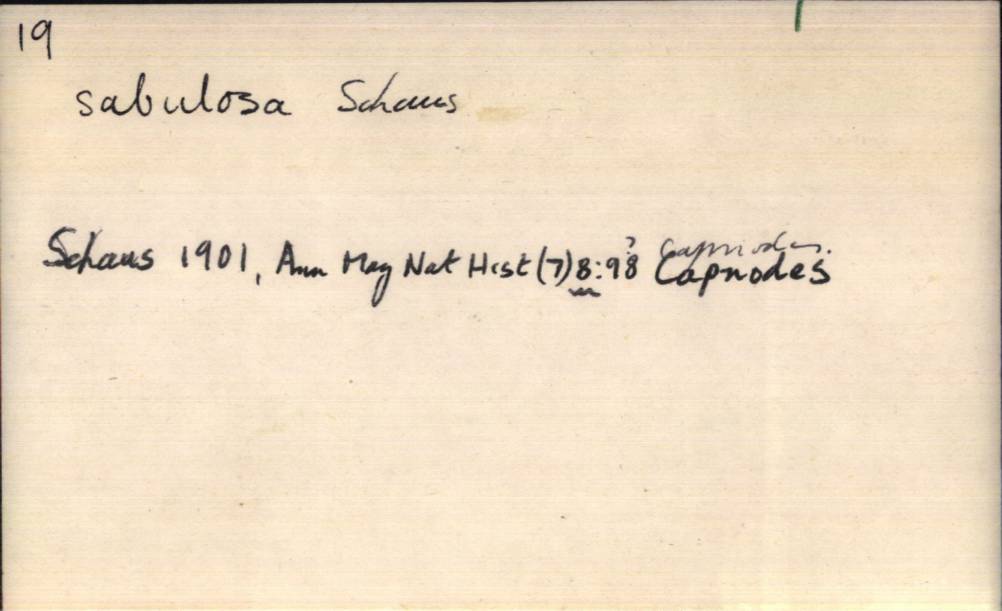 19
sabulosa Schaus
?
Schaus 1901, Ann Mag Nat Hist (7) 8:98 Capnodes